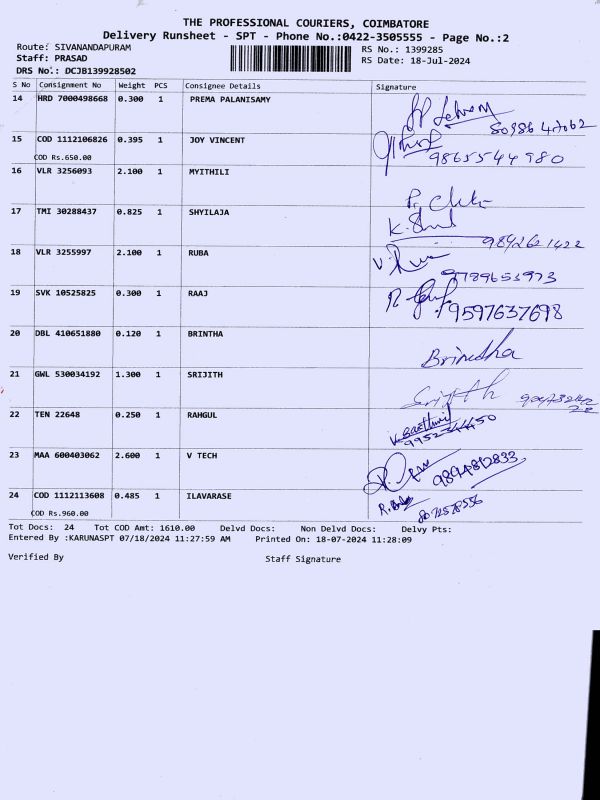 THE PROFESSIONAL COURIERS, COIMBATORE
Delivery Runsheet - SPT - Phone No.:0422-3505555 - Page No.:2
Route: SIVANANDAPURAM
RS No.: 1399285
Staff: PRASAD
RS Date: 18-Jul-2024
DRS No.: DCJB139928502
S No Consignment No Weight PCS Consignee Details Signature
14 HRD 7000498668 0.300 1 PREMA PALANISAMY
15 COD 1112106826 0.395 1 JOY VINCENT
COD Rs.650.00 9865544980
16 VLR 3256093 2.100 1 MYITHILI
17 TMI 30288437 0.825 1 SHYILAJA
9842621422
18 VLR 3255997 2.100 1 RUBA
9789653973
19 SVK 10525825 0.300 1 RAAJ
9597637698
20 DBL 410651880 0.120 1 BRINTHA
Brindha
21 GWL 530034192 1.300 1 SRIJITH
Srijith
22 TEN 22648 0.250 1 RAHGUL
23 MAA 600403062 2.600 1 V TECH
9894812833
24 COD 1112113608 0.485 1 ILAVARASE
COD Rs.960.00
Tot Docs: 24 Tot COD Amt: 1610.00 Delvd Docs: Non Delvd Docs: Delvy Pts:
Entered By :KARUNASPT 07/18/2024 11:27:59 AM Printed On: 18-07-2024 11:28:09
Verified By Staff Signature